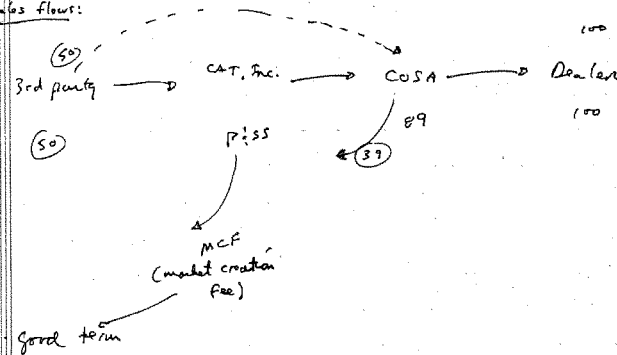 les flows:
100
(50)
3rd party CAT. Inc. COSA Dealer
100
89
(50) P!SS (39)
MCF
(market creation
fee)
good term